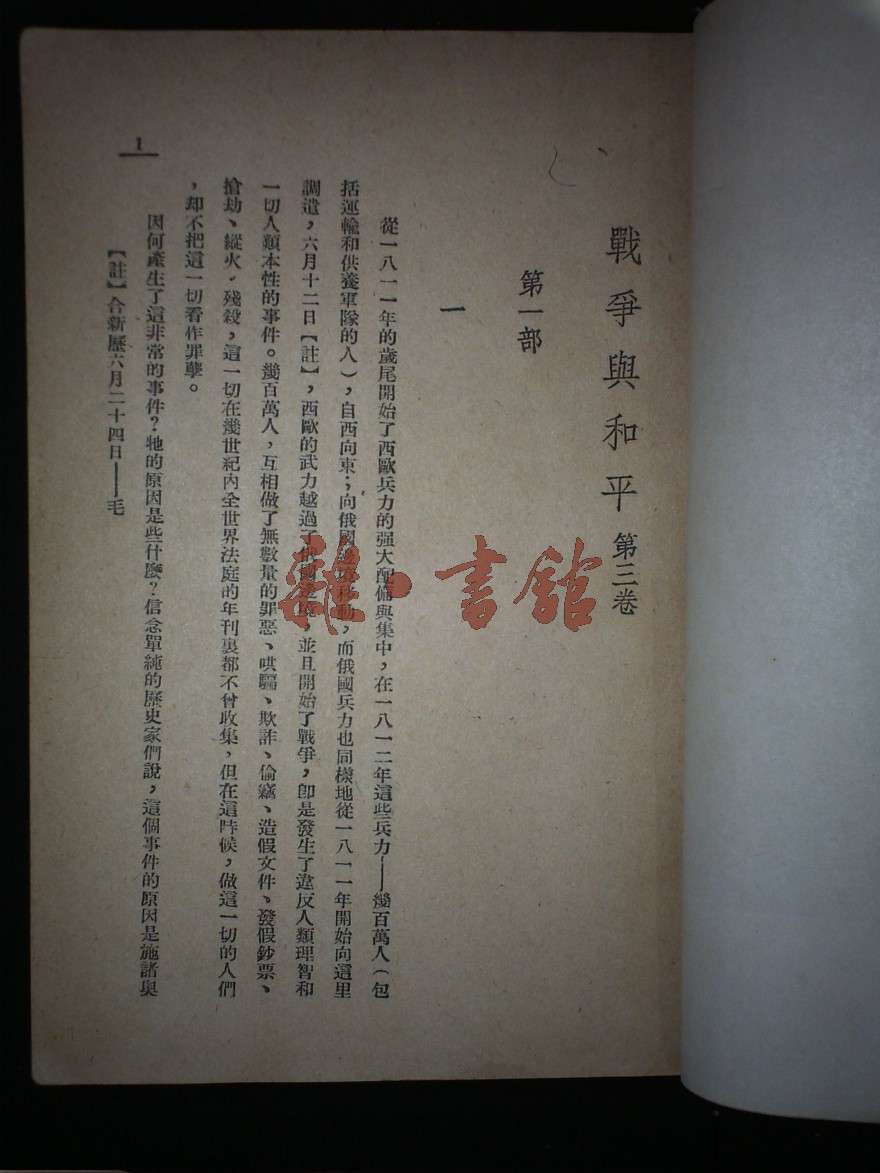 戰爭與和平 第三卷
第一部
一
從一八一一年的歲尾開始了西歐兵力的强大配備與集中，在一八一二年這些兵力——幾百萬人（包
括運輸和供養軍隊的人），自西向東；向俄國邊境移動，而俄國兵力也同樣地從一八一一年開始向這里
調遣，六月十二日【註】，西歐的武力越過了俄國邊境，並且開始了戰爭，卽是發生了違反人類理智和
一切人類本性的事件。幾百萬人，互相做了無數量的罪惡、哄騙、欺詐、偷竊、造假文件、發假鈔票、
搶劫、縱火，殘殺，這一切在幾世紀內全世界法庭的年刊裏都不曾收集，但在這時候，做這一切的人們
，却不把這一切看作罪孽。
因何產生了這非常的事件？牠的原因是些什麼？信念單純的歷史家們說，這個事件的原因是施諸奧
【註】合新歷六月二十四日——毛
1
雜·書館